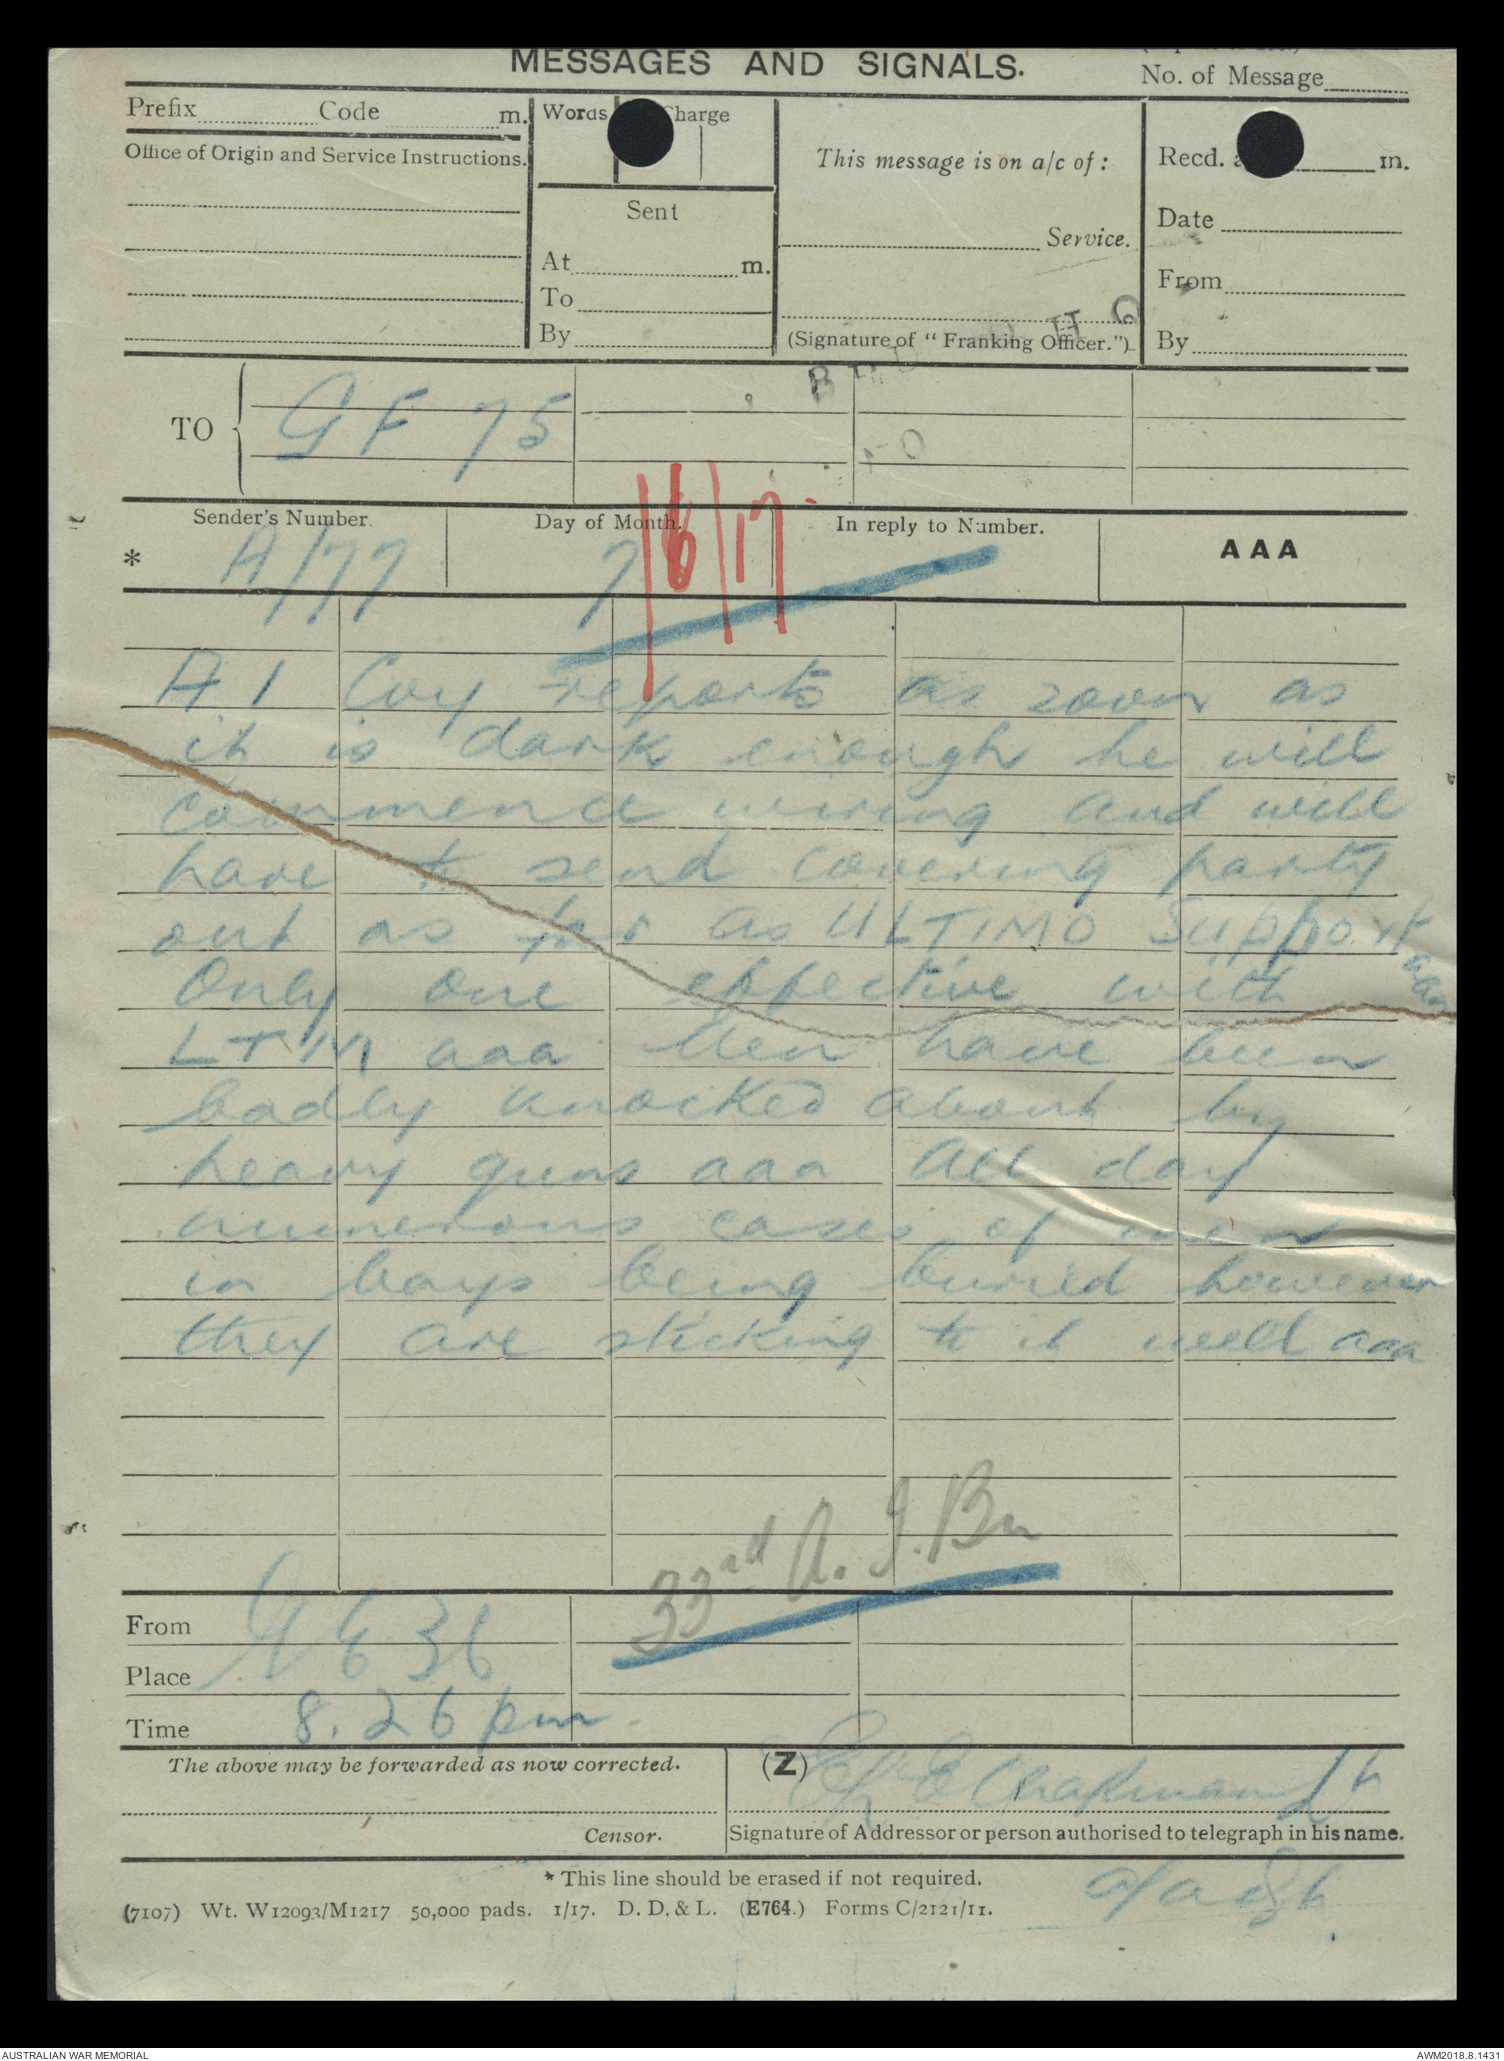 MESSAGES AND SIGNALS.
No. of Message
Prefix Code m.
Words Charge
Office of Origin and Service Instructions.
This message is on a/c of :
Recd. m.
Sent
Date
Service.
At m.
From
To
(Signature of "Franking Officer.")
By
By
TO
GF 75
Sender's Number.
Day of Month.
In reply to Number.
AAA
* A/77 7/6/17
A1 Coy reports as soon as
it is dark enough he will
commence wiring and will
have to send covering party
out as far as ULTIMO Support
aaa
Only one effective with
LTM aaa Men have been
badly knocked about by
heavy guns aaa All day
numerous cases of men
in bays being buried however
they are sticking to it well aaa
33rd A. I. Bn
From
Place
Time 8.26 pm
The above may be forwarded as now corrected.
(Z)
Chapman Lt
Censor.
Signature of Addressor or person authorised to telegraph in his name.
* This line should be erased if not required.
(7107) Wt. W12093/M1217 50,000 pads. 1/17. D. D. & L. (E764.) Forms C/2121/11.
a/adjt
AUSTRALIAN WAR MEMORIAL
AWM2018.8.1431